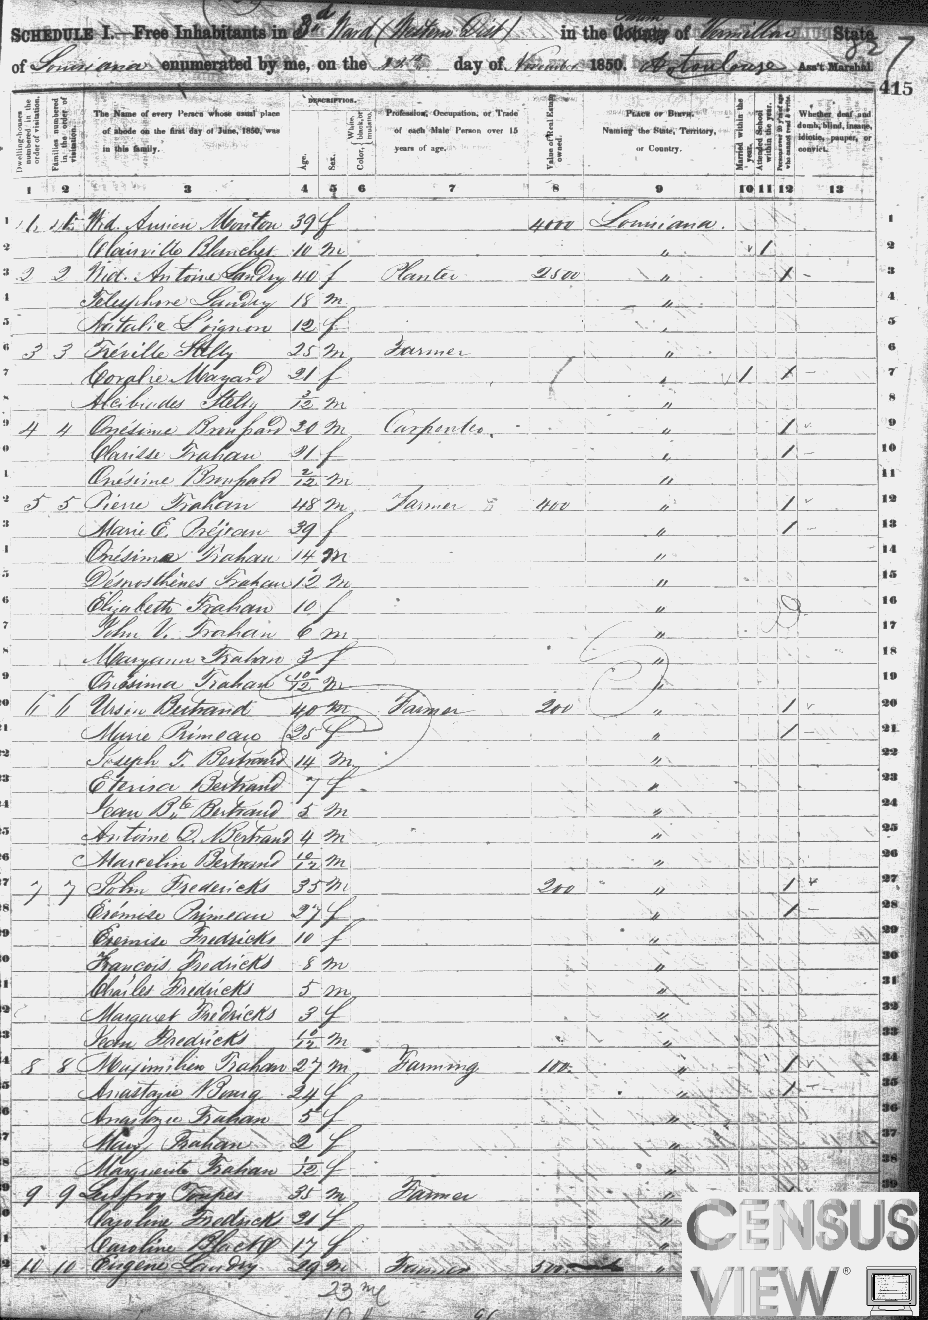 SCHEDULE I.—Free Inhabitants in 3d Ward (Western Dist) in the County of Vermillion State
of Louisiana enumerated by me, on the day of November 1850. Ass't Marshal.
827
415
DESCRIPTION.
Dwelling-houses numbered in the order of visitation.
Families numbered in the order of visitation.
The Name of every Person whose usual place of abode on the first day of June, 1850, was in this family.
Age.
Sex.
Color, White, black, or mulatto.
Profession, Occupation, or Trade of each Male Person over 15 years of age.
Value of Real Estate owned.
PLACE OF BIRTH, Naming the State, Territory, or Country.
Married within the year.
Attended School within the year.
Persons over 20 y'rs of age who cannot read & write.
Whether deaf and dumb, blind, insane, idiotic, pauper, or convict.
1 2 3 4 5 6 7 8 9 10 11 12 13
1 Wid. Mouton 39 f 4000 Louisiana. 1
2 Clairville Blanchet 10 m " 1 2
3 2 2 Wid. Antoine Landry 40 f Planter 2500 " 1 3
4 Telesphore Landry 18 m " 4
5 Natalie Loignon 12 f " 5
6 3 3 Tréville Stelly 25 m Farmer " 6
7 Coralie Mayard 21 f " 1 1 7
8 Alcibiades Stelly 3/12 m " 8
9 4 4 Onésime Broussard 20 m Carpenter. " 1 9
10 Clarisse Trahan 21 f " 1 10
11 Onésime Broussard 2/12 m " 11
12 5 5 Pierre Trahan 48 m Farmer 400 " 1 12
13 Marie E. Préjean 39 f " 1 13
14 Onésime Trahan 14 m " 14
15 Démosthènes Trahan 12 m " 15
16 Elizabeth Trahan 10 f " 16
17 John V. Trahan 6 m " 17
18 Maryann Trahan 3 f " 18
19 Onésima Trahan 10/12 m " 19
20 6 6 Ursin Bertrand 40 m Farmer 200 " 1 20
21 Marie Primeau 25 f " 1 21
22 Joseph T. Bertrand 14 m " 22
23 Bertrand 7 f " 23
24 Jean Bte Bertrand 5 m " 24
25 Antoine D. Bertrand 4 m " 25
26 Marcelin Bertrand 10/12 m " 26
27 7 7 John Fredericks 35 m 200 " 1 27
28 Erémise Primeau 27 f " 1 28
29 Eremise Fredricks 10 f " 29
30 François Fredricks 8 m " 30
31 Charles Fredricks 5 m " 31
32 Margaret Fredricks 3 f " 32
33 Jean Fredricks 10/12 m " 33
34 8 8 Maximilien Trahan 27 m Farming 100 " 1 34
35 Anastazie Bourg 24 f " 1 35
36 Anastazie Trahan 5 f " 36
37 Mary Trahan 2 f " 37
38 Marguerite Trahan /12 f " 38
39 9 9 Toupes 35 m Farmer " 39
Caroline Fredrick 21 f "
Caroline Black 17 f "
10 10 Eugène Landry 29 m Farmer 500 "
23 m
CENSUS
VIEW®